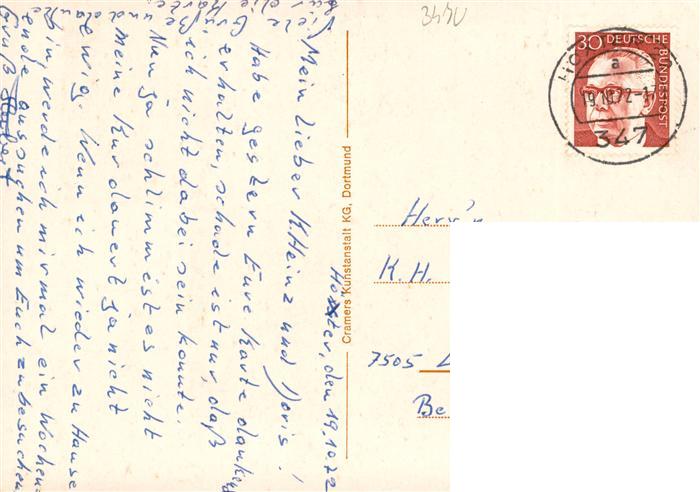 3440
30 DEUTSCHE
BUNDESPOST
a
19.10.72-17
347
Höxter, den 19.10.72
Mein lieber K. Heinz und Doris!
Habe gestern Eure Karte dankend
erhalten, schade ist nur, daß
ich nicht dabei sein konnte.
Nun ja schlimm ist es nicht
meine Kur dauert ja nicht
ewig. Wenn ich wieder zu Hause
bin, werde ich mir mal ein Wochen-
ende aussuchen um Euch zu besuchen
Gruß Herbert
Cramers Kunstanstalt KG, Dortmund
Herr'n
K. H.
7505
Be